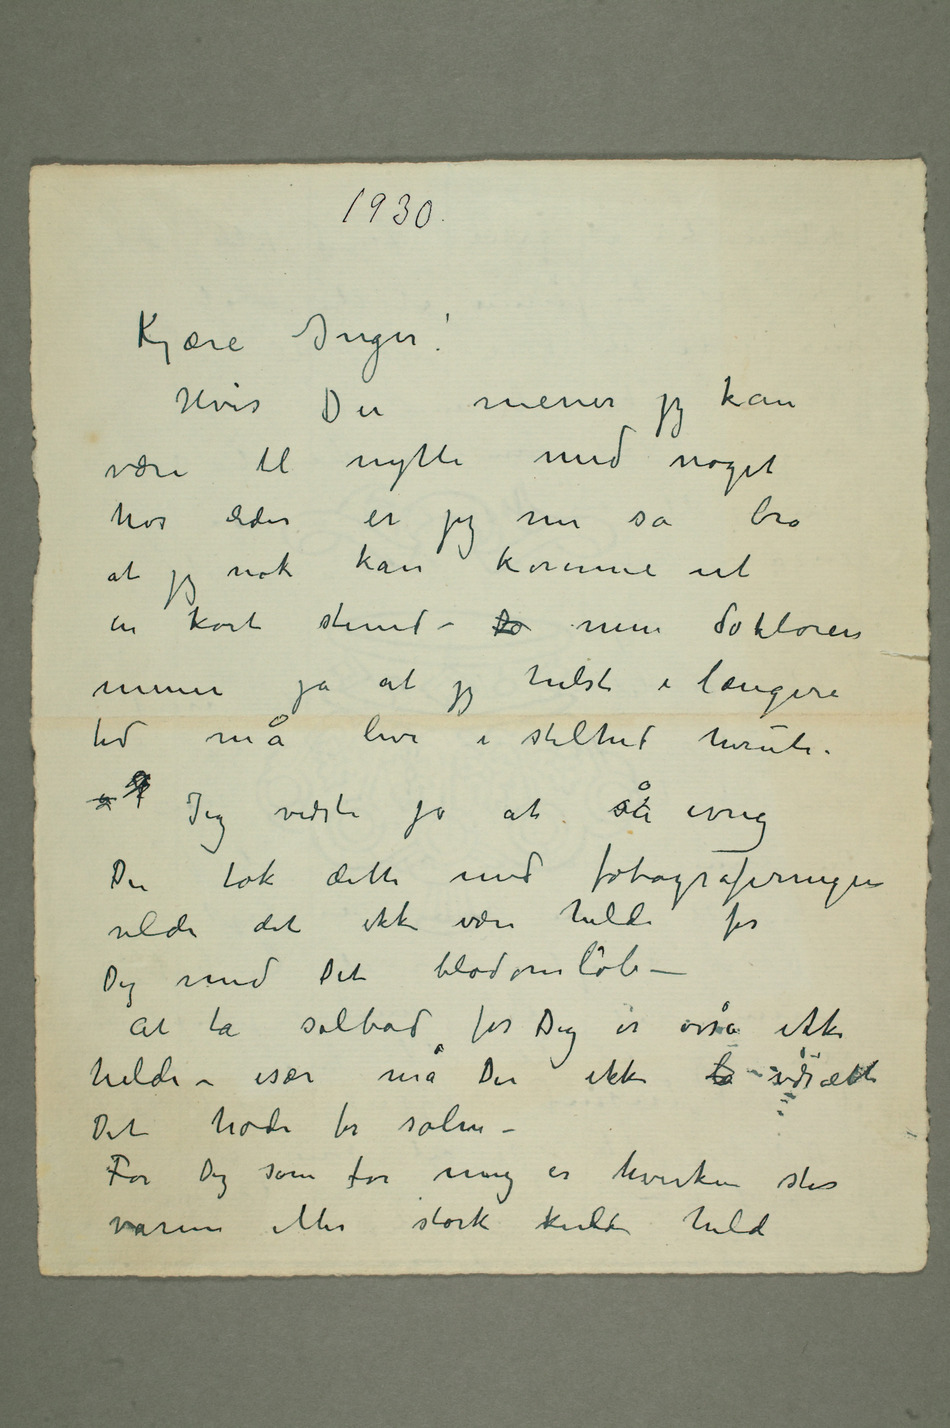 1930.
Kjære Inger!
Hvis Du mener jeg kan
være til nytte med noget
hos eder er jeg nu så bra
at jeg nok kan komme ut
en kort stund – Do men doktoren
mener ja at jeg helst i længere
tid må leve i stilhed herute.
Jeg vidste jo at så ivrig
Du tok dette med fotograferingen
vilde det ikke være heldi for
Dig med Dit blodomløb –
At ta solbad for Dig er osså ikke
heldi – især må Du ikke la udsætte
Dit hode for solen –
For Dig som for mig er hverken stor
varme eller stærk kulde held